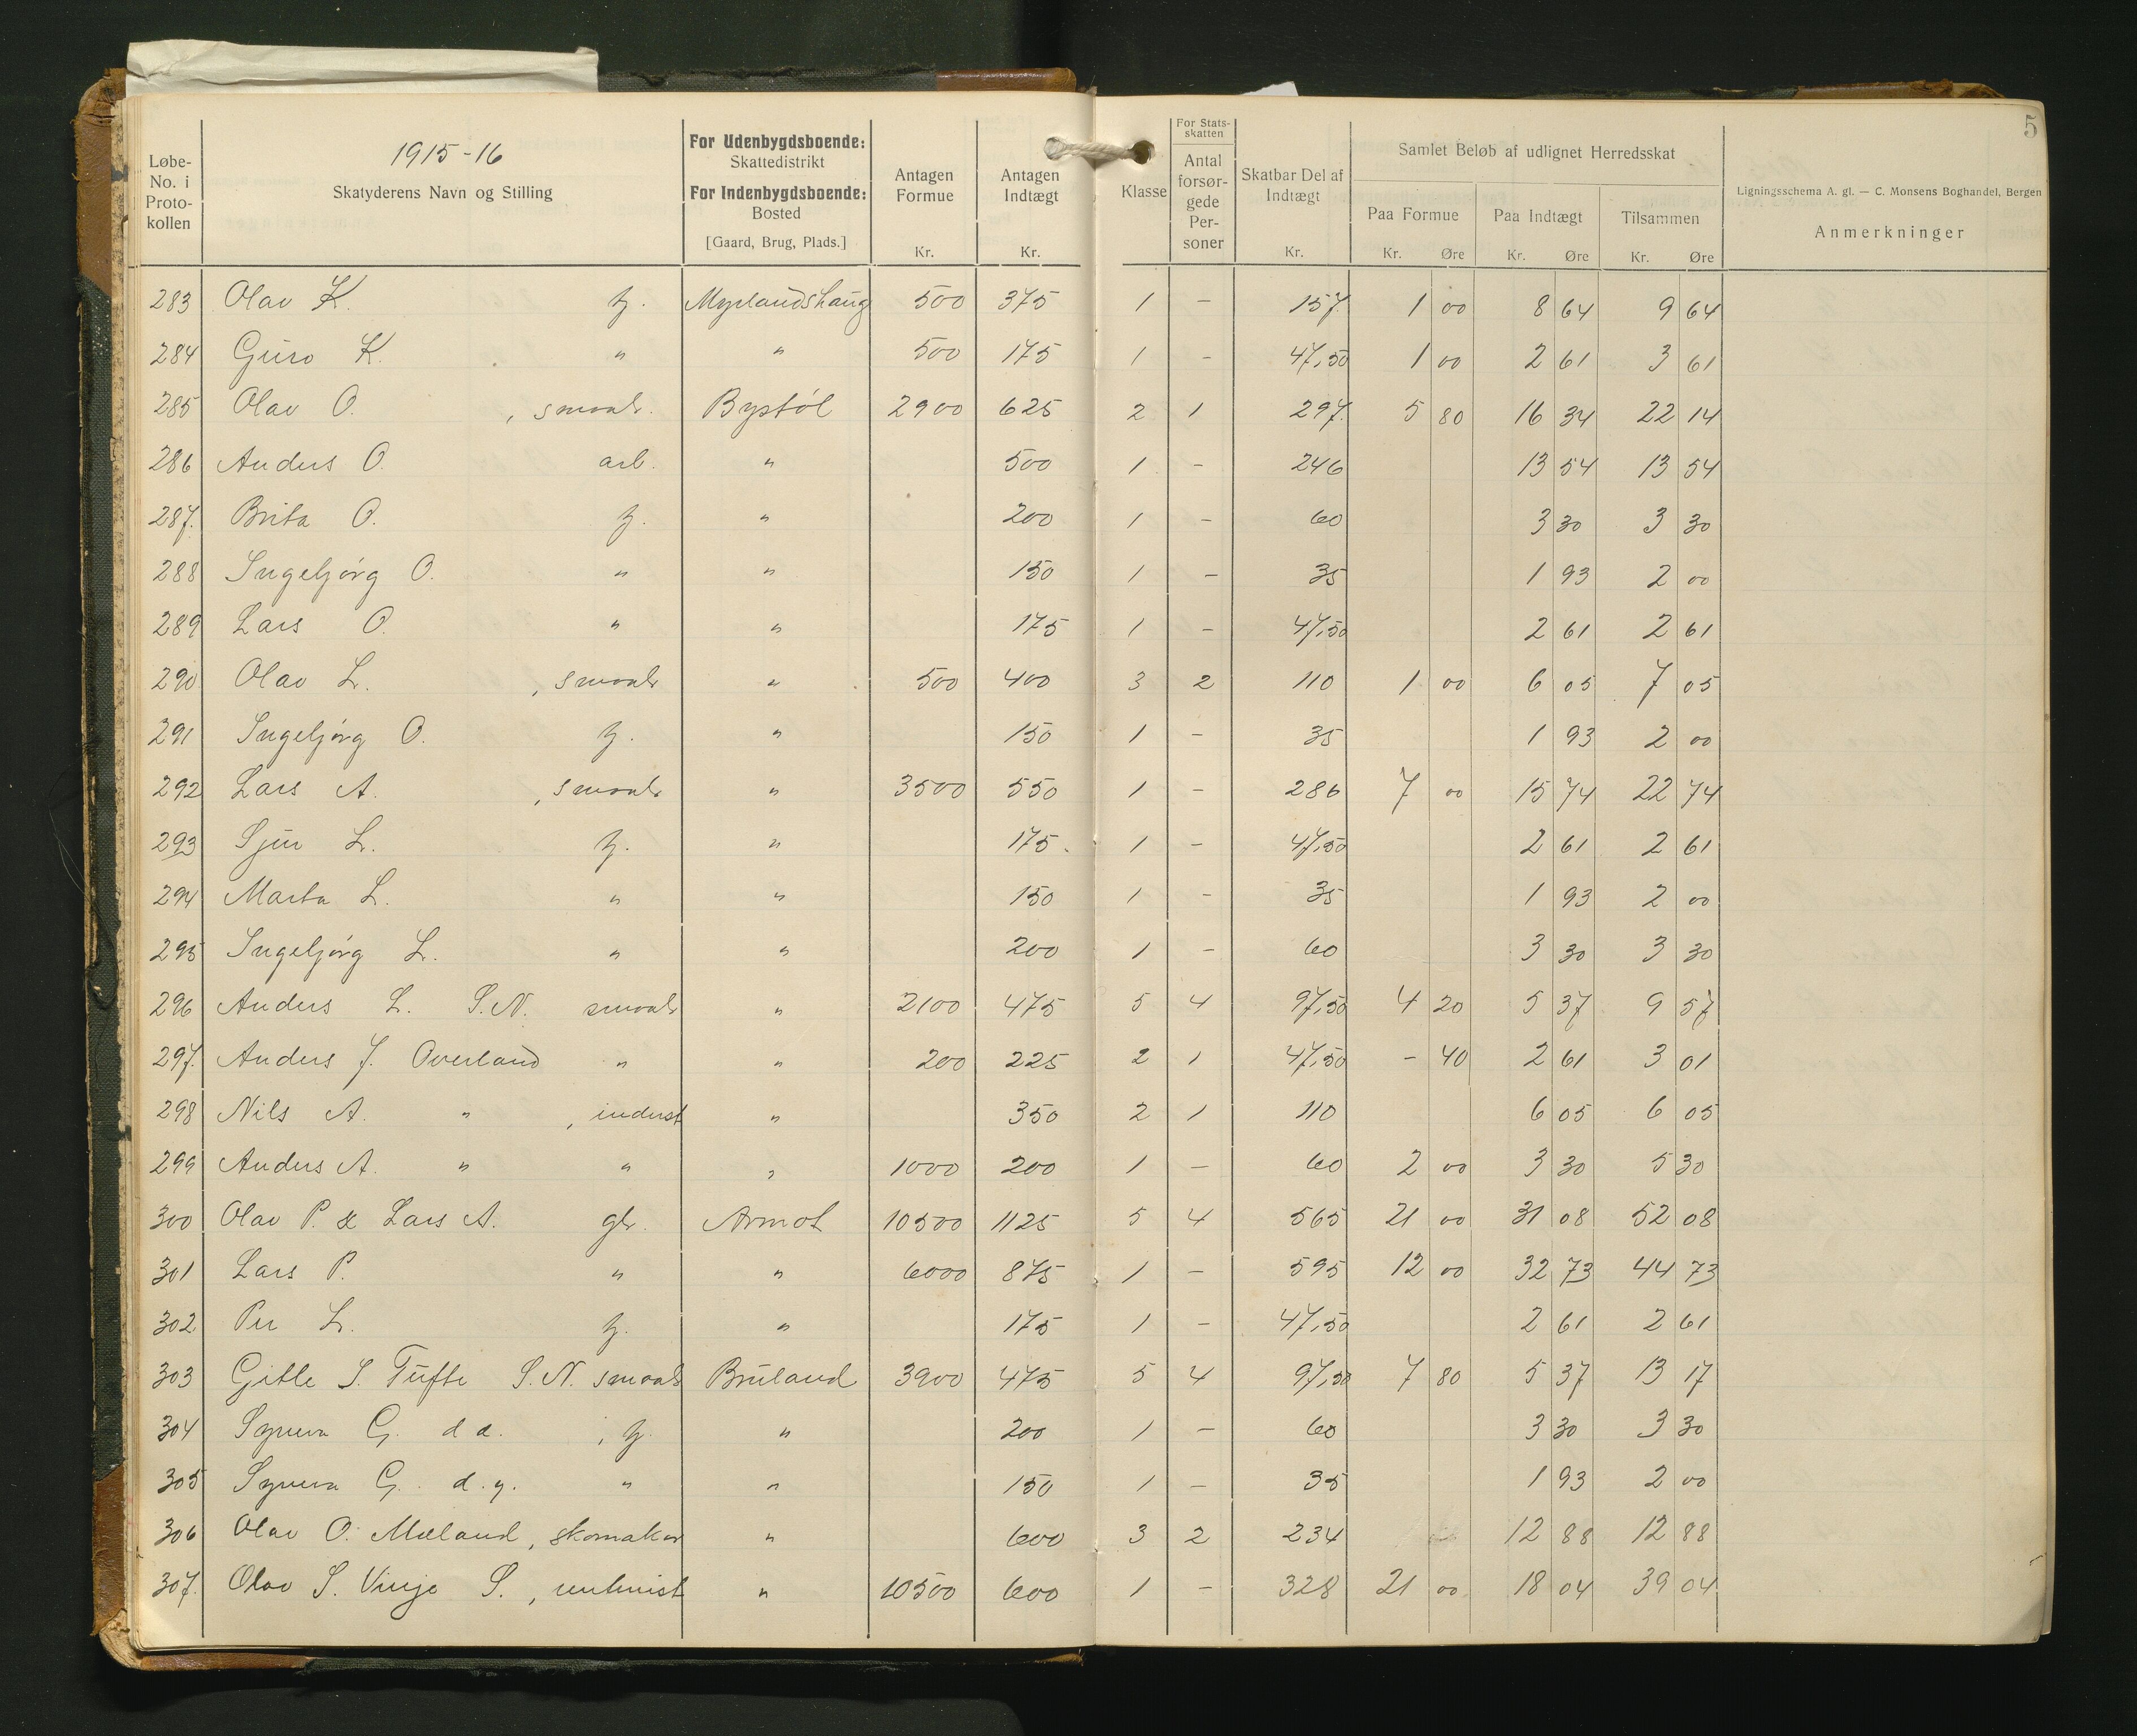 5
Løbe-No. i Proto-kollen
1915-16
Skatyderens Navn og Stilling
For Udenbygdsboende:
Skattedistrikt
For Indenbygdsboende:
Bosted
[Gaard, Brug, Plads.]
Antagen Formue
Kr.
Antagen Indtægt
Kr.
Klasse
For Stats-skatten
Antal forsør-gede Per-soner
Skatbar Del af Indtægt
Kr.
Samlet Beløb af udlignet Herredsskat
Paa Formue
Kr. Øre
Paa Indtægt
Kr. Øre
Tilsammen
Kr. Øre
Ligningsschema A. gl. — C. Monsens Boghandel, Bergen
Anmerkninger
283 Olav K. Myrlandshaug 500 375 1 - 157. 1 00 8 64 9 64
284 Guro K. " " 500 175 1 - 47,50 1 00 2 61 3 61
285 Olav O. , smaabr. Bystøl 2900 625 2 1 297. 5 80 16 34 22 14
286 Anders O. arb. " 500 1 - 246 13 54 13 54
287. Brita O. " 200 1 - 60 3 30 3 30
288 Ingebjørg O. " " 150 1 - 35 1 93 2 00
289 Lars O. " " 175 1 - 47,50 2 61 2 61
290 Olav L. , smaabr " 500 400 3 2 110 1 00 6 05 7 05
291 Ingebjørg O. " 150 1 - 35 1 93 2 00
292 Lars A. , smaabr " 3500 550 1 - 286 7 00 15 74 22 74
293 Sjur L. " 175 1 - 47,50 2 61 2 61
294 Marta L. " " 150 1 - 35 1 93 2 00
295 Ingebjørg L. " " 200 1 - 60 3 30 3 30
296 Anders L. S.N. smaabr " 2100 475 5 4 97,50 4 20 5 37 9 57
297. Anders J. Overland " " 200 225 2 1 47,50 - 40 2 61 3 01
298 Nils A. " , inderst " 350 2 1 110 6 05 6 05
299 Anders A. " " " 1000 200 1 - 60 2 00 3 30 5 30
300 Olav P. & Lars A. gbr. Armot 10500 1125 5 4 565 21 00 31 08 52 08
301 Lars P. " " 6000 875 1 - 595 12 00 32 73 44 73
302 Per L. " 175 1 - 47,50 2 61 2 61
303 Gitle S. Tufte S.N. smaabr Bruland 3900 475 5 4 97,50 7 80 5 37 13 17
304 Synneva G. d.e. " 200 1 - 60 3 30 3 30
305 Synneva G. d.y. " " 150 1 - 35 1 93 2 00
306 Olav O. Mæland, skomaker " 600 3 2 234 12 88 12 88
307. Olav S. Vinje S., rentenist " 10500 600 1 - 328 21 00 18 04 39 04